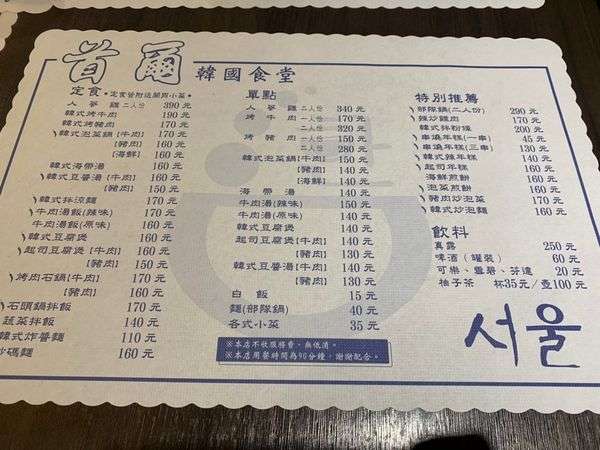 首爾 韓國食堂
定食 •定食皆附送開胃小菜•
人蔘雞 二人份 390元
韓式烤牛肉 190元
韓式烤豬肉 170元
韓式泡菜鍋[牛肉] 170元
[豬肉] 160元
[海鮮] 160元
韓式海帶湯 160元
韓式豆醬湯[牛肉] 160元
[豬肉] 150元
韓式拌涼麵 160元
牛肉湯飯(辣味) 170元
牛肉湯飯(原味) 170元
韓式豆腐煲 160元
起司豆腐煲[牛肉] 160元
[豬肉] 150元
烤肉石鍋[牛肉] 170元
[豬肉] 160元
石頭鍋拌飯 170元
蔬菜拌飯 140元
韓式炸醬麵 110元
炒碼麵 160元
單點
人蔘雞 二人份 340元
烤牛肉 一人份 170元
二人份 320元
烤豬肉 一人份 150元
二人份 280元
韓式泡菜鍋[牛肉] 150元
[豬肉] 140元
[海鮮] 140元
海帶湯 140元
牛肉湯(辣味) 150元
牛肉湯(原味) 150元
韓式豆腐煲 140元
起司豆腐煲[牛肉] 140元
[豬肉] 130元
韓式豆醬湯[牛肉] 140元
[豬肉] 130元
白飯 15元
麵(部隊鍋) 40元
各式小菜 35元
※本店不收服務費、無低消。
※本店用餐時間為90分鐘,謝謝配合。
特別推薦
部隊鍋(二人份) 290元
辣炒雞肉 170元
韓式拌粉條 200元
串燒年糕(一串) 45元
串燒年糕(三串) 130元
韓式辣年糕 140元
起司年糕 160元
海鮮煎餅 160元
泡菜煎餅 160元
豬肉炒泡麵 170元
韓式炒泡麵 160元
飲料
真露 250元
啤酒(罐裝) 60元
可樂、雪碧、芬達 20元
柚子茶 杯35元/壺100元
서울